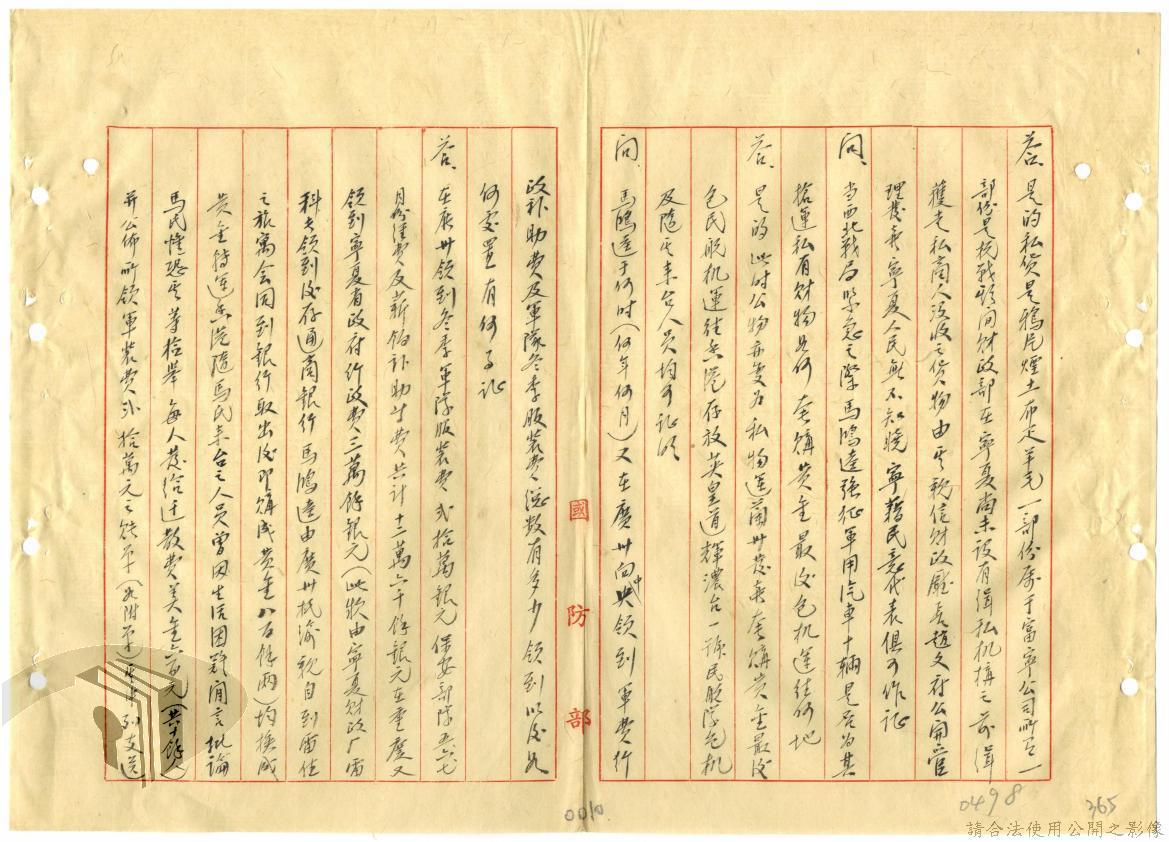 答、是的私貨是鴉片煙土布疋羊毛一部份屬于富寧公司所有一
部份是抗戰期間財政部在寧夏尚未設有緝私机構之前緝
獲走私商人沒收之貨物由其親信財政廳長趙文府公開管
理賣寧夏人民無不知曉寧籍民意代表俱可作証
問、當西北戰局緊急之際馬鴻逵強征軍用汽車十輛是否為其
搶運私有財物如何套購黃金最後包机運往何地
答、是的此时公物亦变为私物运蘭州套購黃金最後
包民航机運往香港存放英皇道輝濃台一號民航隊包机
及隨其来台人員均可証明
問、馬鴻逵于何时(何年何月)又在廣州向中央領到軍費行
政补助費及軍隊冬季服裝費総数有多少領到以後如
何處置有何事证
答、在廣州領到冬季軍隊服裝費弍拾萬銀元保安部隊五六七
月份経費及薪餉补助等費共计十二萬六千餘銀元在重慶又
領到寧夏省政府行政費三萬餘銀元(此款由寧夏財政厂雷
科长領到後存通商銀行馬鴻逵由廣州抵渝親自到雷住
之旅寓会同到銀行取出後即購成黃金八百餘两)均換成
黃金轉運香港隨馬氏来台之人員曾因生活困難閒言批論
馬氏惟恐其等拾舉每人发给迁散費美金六百元(共十餘人
并公佈所領軍裝費弐拾萬元之帐单(如附单)列支送
國防部
0010
0498
365
請合法使用公開之影像